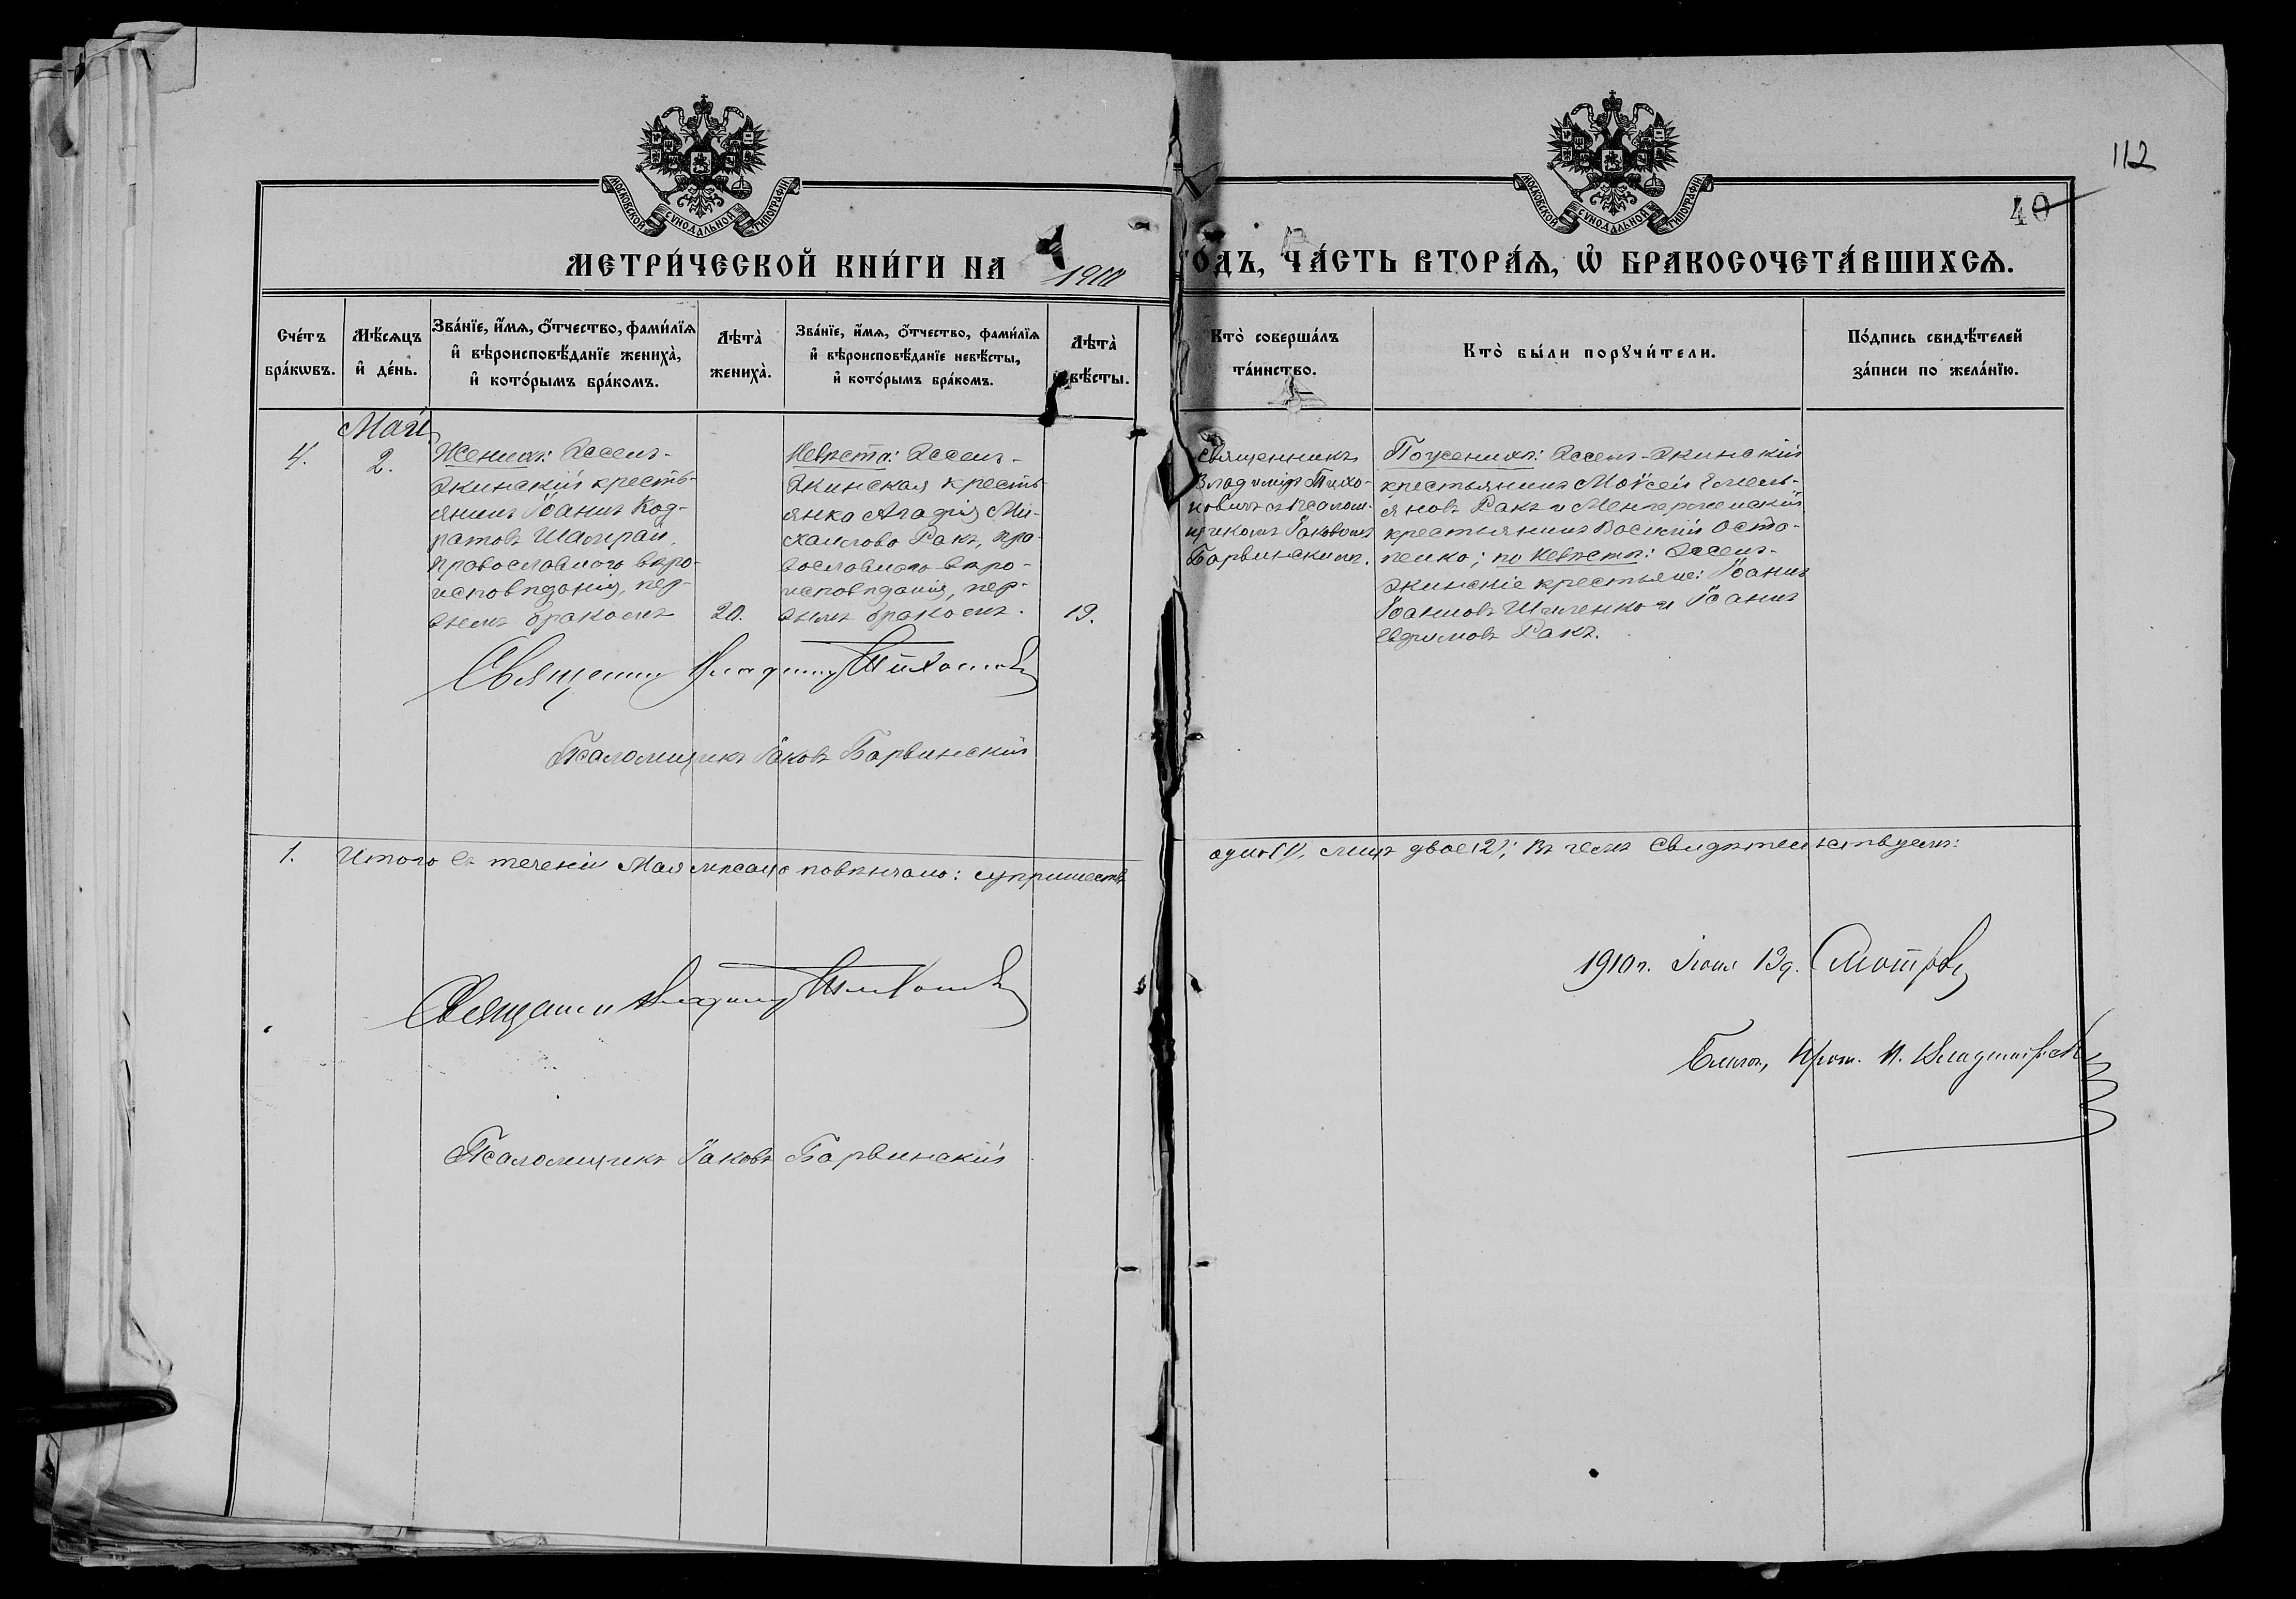 МОСКОВСКОЙ СѴНОДАЛЬНОЙ ТИПОГРАФІИ.
МОСКОВСКОЙ СѴНОДАЛЬНОЙ ТИПОГРАФІИ.
112
40
МЕТРИ́ЧЕСКОЙ КНИ́ГИ НА 1910
ГО́ДЪ, ЧА́СТЬ ВТОРА́Ѧ, Ѿ БРАКОСОЧЕТА́ВШИХСѦ.
Сче́тъ
бра́кѡвъ.
Мѣ́сѧцъ
и҆ де́нь.
Зва́нїе, и҆́мѧ, ѻ҆́тчество, фами́лїѧ
и҆ вѣроисповѣ́данїе жениха̀,
и҆ кото́рымъ бра́комъ.
Лѣта̀
жениха̀.
Зва́нїе, и҆́мѧ, ѻ҆́тчество, фами́лїѧ
и҆ вѣроисповѣ́данїе невѣ́сты,
и҆ кото́рымъ бра́комъ.
Лѣта̀
вѣ́сты.
Кто̀ соверша́лъ
та́инство.
Кто̀ бы́ли порꙋчи́тели.
По́дпись свидѣ́телей
за́писи по жела́нїю.
Май
4.
2.
Женихъ: Ассеиз-
Экинскій кресть-
янинъ Іоаннъ Код-
ратовъ Шамрай,
православнаго вѣро-
исповѣданія, пер-
вымъ бракомъ
20.
Невѣста:
Экинская кресть-
янка Агафія Ми-
хаилова Ракъ, пра-
вославнаго вѣро-
исповѣданія, пер-
вымъ бракомъ.
19.
Священникъ
Владиміръ Тихо-
новичъ съ псалом-
щикомъ Іаковомъ
Барвинскимъ.
По женихѣ: Экинскій
крестьянинъ Моѵсей Емель-
яновъ Ракъ и
крестьянинъ Василій Оста-
пенко; по невѣстѣ:
Экинскіе крестьяне: Іоаннъ
Іоанновъ и Іоаннъ
Евфимовъ Ракъ.
Священникъ Владиміръ Тихоновичъ
Псаломщикъ Іаковъ Барвинскій
1. Итого въ теченіи Мая мѣсяца повѣнчано: супружествъ
одно (1), лицъ двое (2); въ чемъ свидѣтельствуемъ:
Священникъ Владиміръ Тихоновичъ
Псаломщикъ Іаковъ Барвинскій
1910 г. Іюня 13 д. Смотрѣлъ
Благоч., Прот. И. Владимірскій